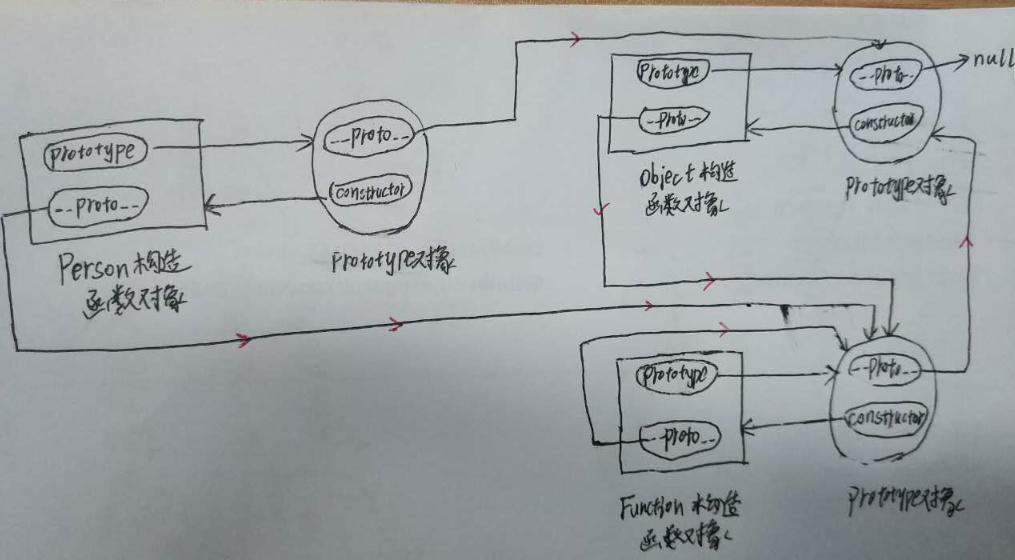 prototype
--proto--
Person构造
函数对象
--proto--
constructor
Prototype对象
Prototype
--proto--
Object构造
函数对象
--proto--
constructor
Prototype对象
null
Prototype
--proto--
Function构造
函数对象
--proto--
constructor
Prototype对象